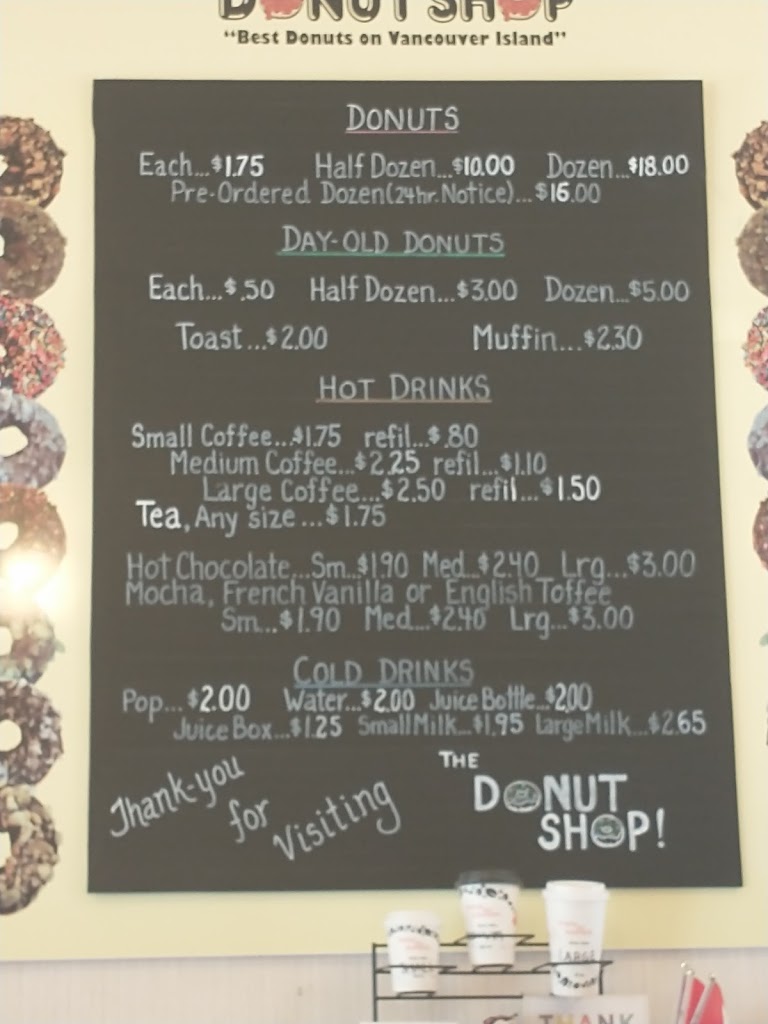 DONUT SHOP
"Best Donuts on Vancouver Island"
DONUTS
Each...$1.75 Half Dozen...$10.00 Dozen...$18.00
Pre-Ordered Dozen(24hr. Notice)...$16.00
DAY-OLD DONUTS
Each...$.50 Half Dozen...$3.00 Dozen...$5.00
Toast...$2.00 Muffin...$2.30
HOT DRINKS
Small Coffee...$1.75 refil...$.80
Medium Coffee...$2.25 refil...$1.10
Large Coffee...$2.50 refil...$1.50
Tea, Any size...$1.75
Hot Chocolate...Sm...$1.90 Med...$2.40 Lrg...$3.00
Mocha, French Vanilla or English Toffee
Sm...$1.90 Med...$2.40 Lrg...$3.00
COLD DRINKS
Pop...$2.00 Water...$2.00 Juice Bottle...$2.00
Juice Box...$1.25 Small Milk...$1.95 Large Milk...$2.65
Thank-you
for
Visiting
THE
DONUT
SHOP!
LARGE
THANK